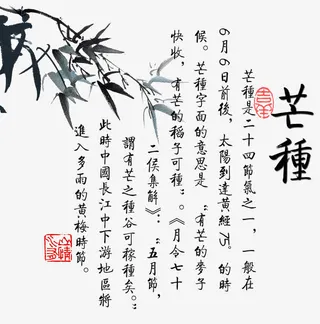 芒種
芒種是二十四節氣之一，一般在
6月6日前後，太陽到達黃經75°的時
候。芒種字面的意思是“有芒的麥子
快收，有芒的稻子可種”。《月令七十
二候集解》：“五月節，
謂有芒之種谷可稼種矣。”
此時中國長江中下游地區將
進入多雨的黃梅時節。